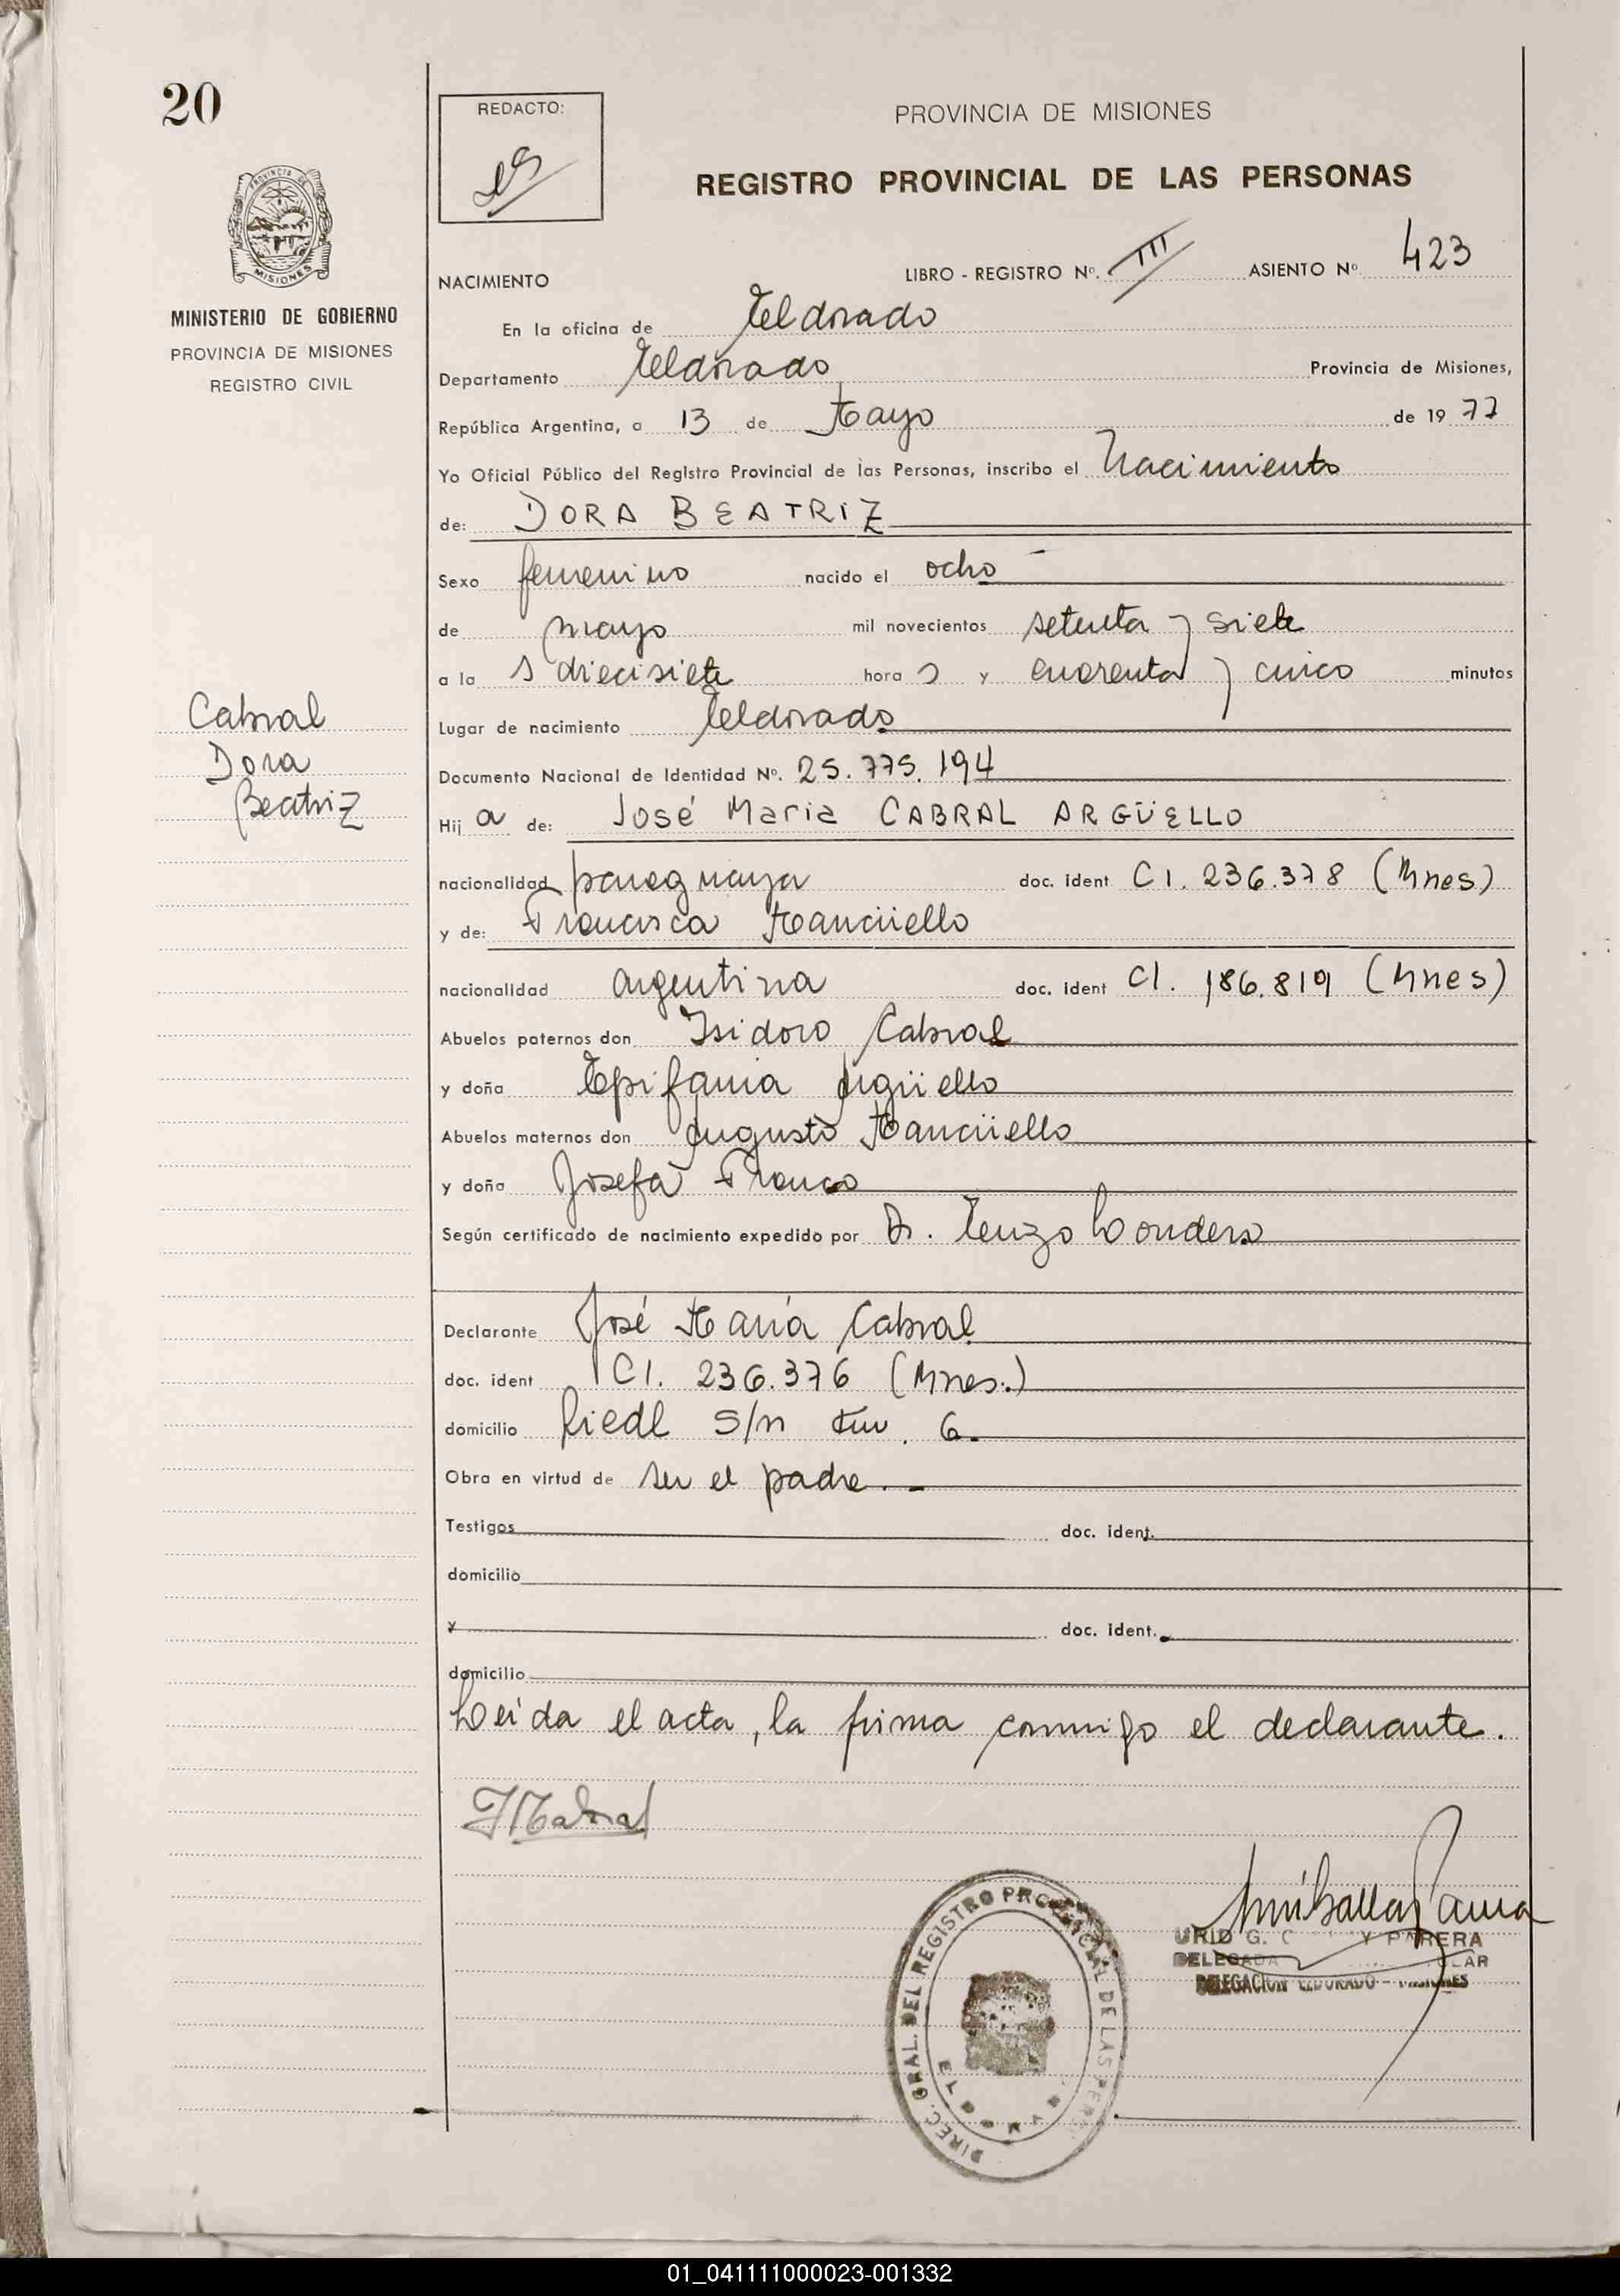 20
REDACTO:
PROVINCIA DE MISIONES
REGISTRO PROVINCIAL DE LAS PERSONAS
MISIONES
MINISTERIO DE GOBIERNO
PROVINCIA DE MISIONES
REGISTRO CIVIL
NACIMIENTO LIBRO - REGISTRO Nº. III ASIENTO Nº 423
En la oficina de Eldorado
Departamento Eldorado Provincia de Misiones,
República Argentina, a 13 de Mayo de 1977
Yo Oficial Público del Registro Provincial de las Personas, inscribo el Nacimiento
de: DORA BEATRIZ
Sexo femenino nacido el ocho
de mayo mil novecientos setenta y siete
a la s diecisiete hora s y cuarenta y cinco minutos
Lugar de nacimiento Eldorado
Documento Nacional de Identidad Nº. 25.775.194
Cabral
Dora
Beatriz
Hij a de: José Maria CABRAL ARGÜELLO
nacionalidad paraguaya doc. ident CI. 236.378 (Mnes)
y de: Francisca Mancüello
nacionalidad argentina doc. ident CI. 186.819 (Mnes)
Abuelos paternos don Isidoro Cabral
y doña Epifania Argüello
Abuelos maternos don Augusto Mancüello
y doña Josefa Franco
Según certificado de nacimiento expedido por Dr. Enzo Londero
Declarante José María Cabral
doc. ident CI. 236.376 (Mnes.)
domicilio Riedl S/n Km. 6.
Obra en virtud de ser el padre.-
Testigos doc. ident.
domicilio
y doc. ident.
domicilio
Leída el acta, la firma conmigo el declarante.
JMCabral
DIREC. GRAL. DEL REGISTRO PROVINCIAL DE LAS PERS.
ELDORADO
G. Y PARERA
DELEGADA
DELEGACION ELDORADO - MISIONES
01_041111000023-001332